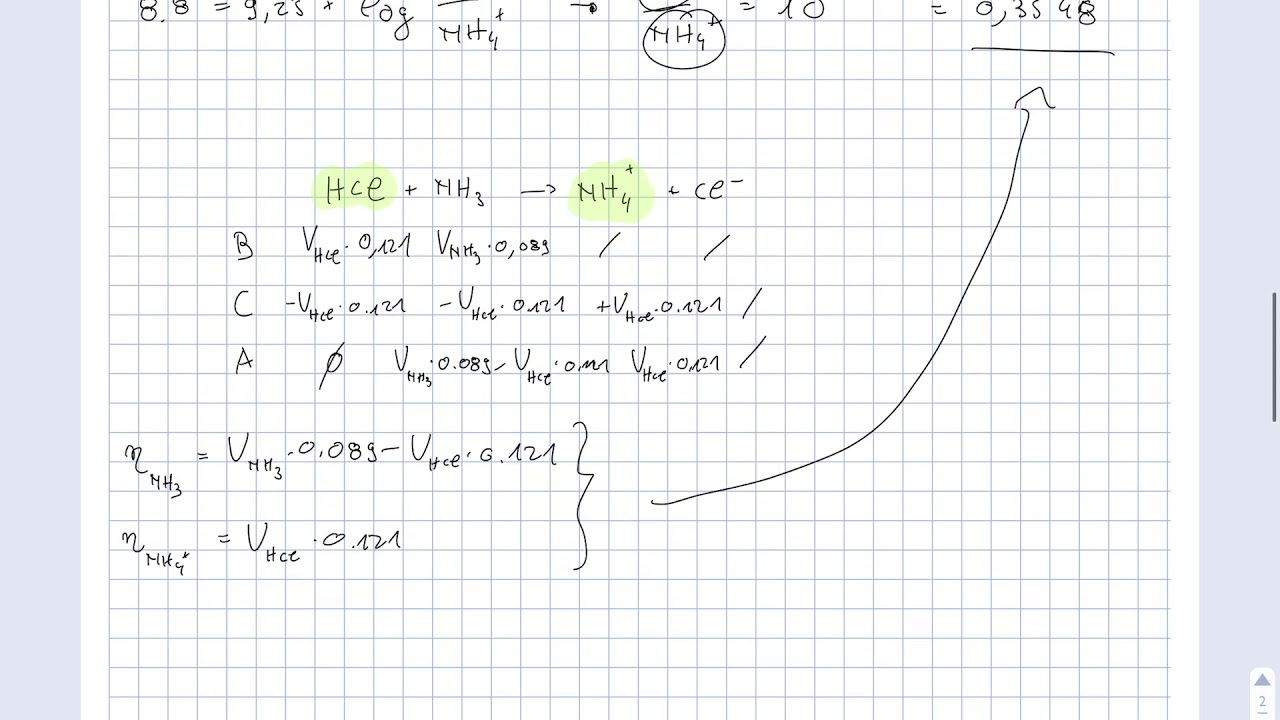 8,8 = 9,25 + log NH₄⁺ → NH₄⁺ = 10 = 0,3548
HCl + NH₃ → NH₄⁺ + Cl⁻
B V_HCl · 0,121 V_NH₃ · 0,089 / /
C -V_HCl · 0.121 - V_HCl · 0.121 +V_HCl · 0.121 /
A ∅ V_NH₃ · 0.089 - V_HCl · 0.121 V_HCl · 0.121 /
n_NH₃ = V_NH₃ · 0,089 - V_HCl · 0.121
n_NH₄⁺ = V_HCl · 0.121
2